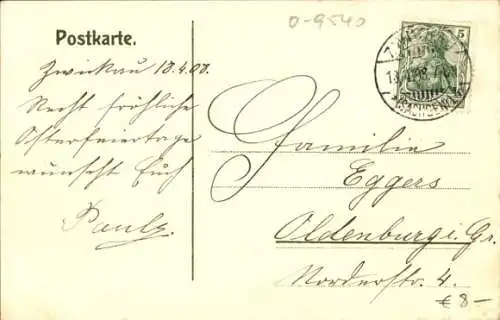 0-9540
Postkarte.
5
Zwickau 18.4.08.
Recht fröhliche
Osterfeiertage
wünscht Euch
Familie
Eggers
Oldenburg i. Gr.
Norderstr. 4.
€ 8-